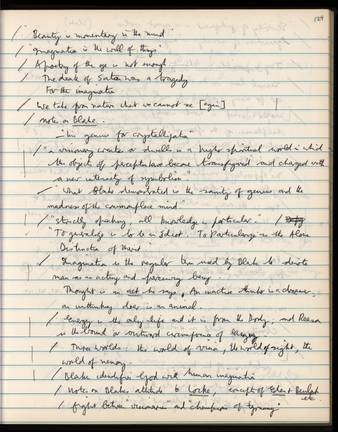 129
/ "Beauty is momentary in the mind"
/ "Imagination is the will of things"
/ A poetry of the eye is not enough
/ The death of Satan was a tragedy
For the imagination
/ We take from nature what we cannot see [again]
/ Note on Blake.
"his genius for crystallization"
/ "a visionary creates or dwells in a higher spiritual world in which
the objects of perception have become transfigured and charged with
a new intensity of symbolism"
/ "What Blake demonstrated is the sanity of genius and the
madness of the commonplace mind"
/ "Strictly speaking, all knowledge is particular" /
"To generalize is to be an Idiot. To Particularize is the Alone
Distinction of Merit"
/ Imagination is the regular term used by Blake to denote
man as an acting and perceiving being
Thought is an act he says, An inactive thinker is a dreamer,
an unthinking doer is an animal.
/ Energy is the only life and it is from the Body, and Reason
is the bound or outward circumference of Energy
/ Three worlds: the world of vision, the world of sight, the
world of memory.
/ Blake identifies God with human imagination
/ Note on Blake's attitude to Locke, concepts of Eden & Beulah
etc
/ fight between visionaries and "champions of tyranny"